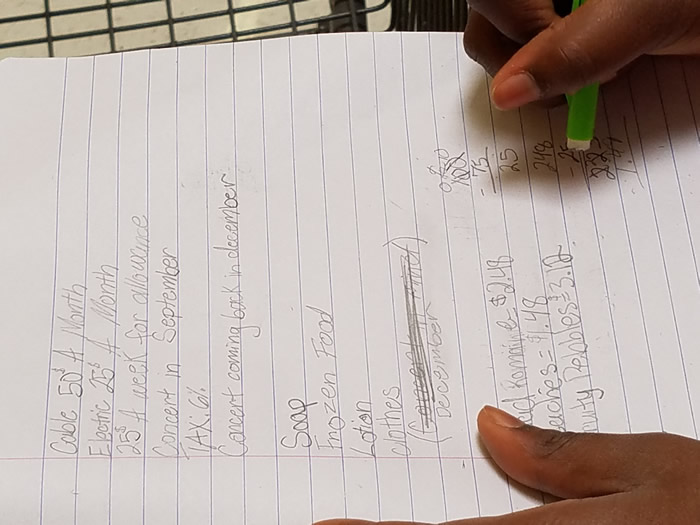 Cable 50$ A Month
Electric 25$ A Month
25$ A week for allowance
Concert in September
TAX: 6%
Concert coming back in december
Soap
Frozen Food
Lotion
clothes
December
= $2.48
= 1.48
Pebbles = 3.12
100
- 75
25
248